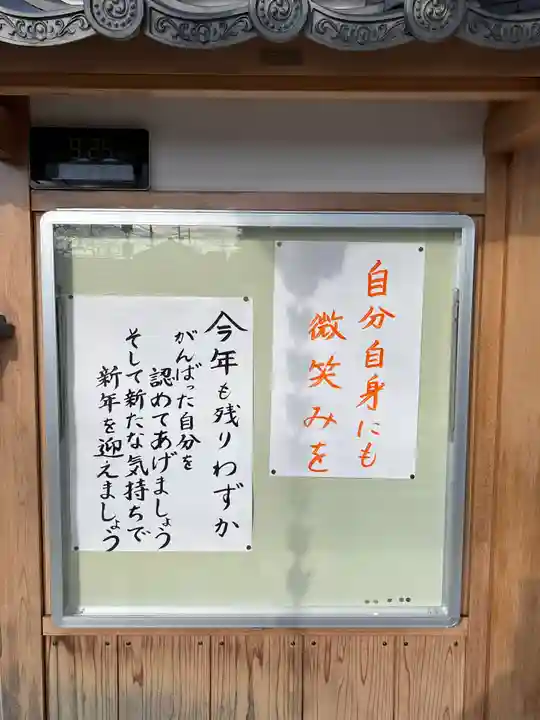 自分自身にも
微笑みを
今年も残りわずか
がんばった自分を
認めてあげましょう
そして新たな気持ちで
新年を迎えましょう